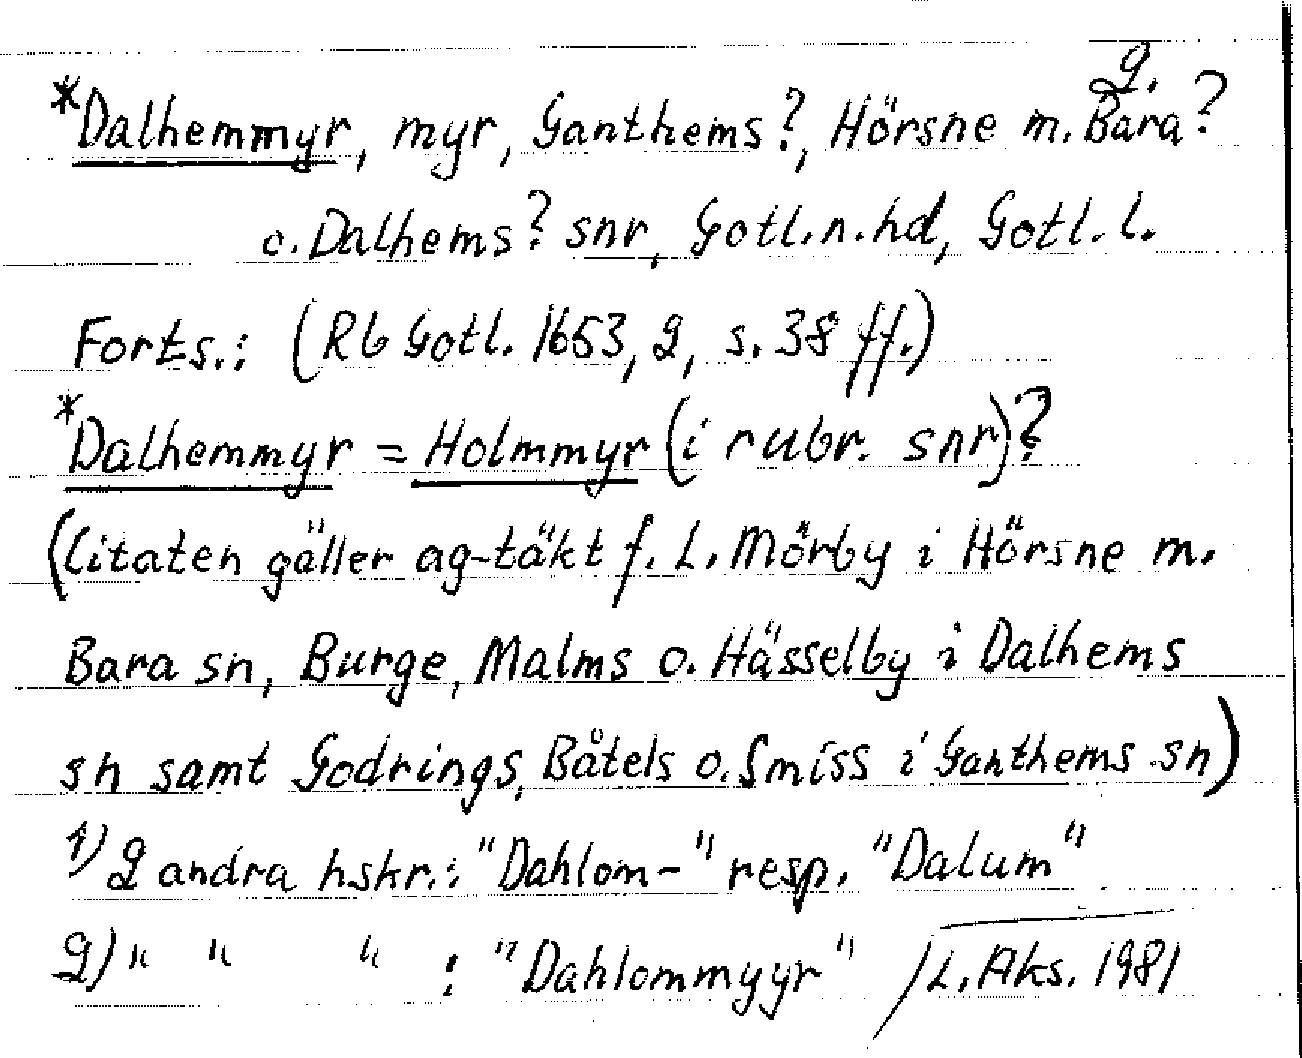 2.
*Dalhemmyr, myr, Ganthems?, Hörsne m. Bara?
o. Dalhems? snr, Gotl.n.hd, Gotl.l.
Forts.: (Rb Gotl. 1653, 2, s. 38 ff.)
*Dalhemmyr = Holmmyr (i rubr. snr)?
(Citaten gäller ag-täkt f. L. Mörby i Hörsne m.
Bara sn, Burge, Malms o. Hässelby i Dalhems
sn samt Godrings, Båtels o. Smiss i Ganthems sn)
1) 2 andra hskr.: "Dahlom-" resp. "Dalum"
2) " " " : "Dahlommyyr" /L. Aks. 1981